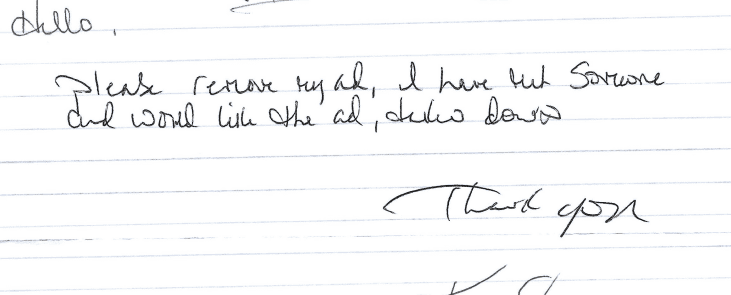 Hello,
please remove my ad, I have met Someone
and would like the ad, taken down
Thank you